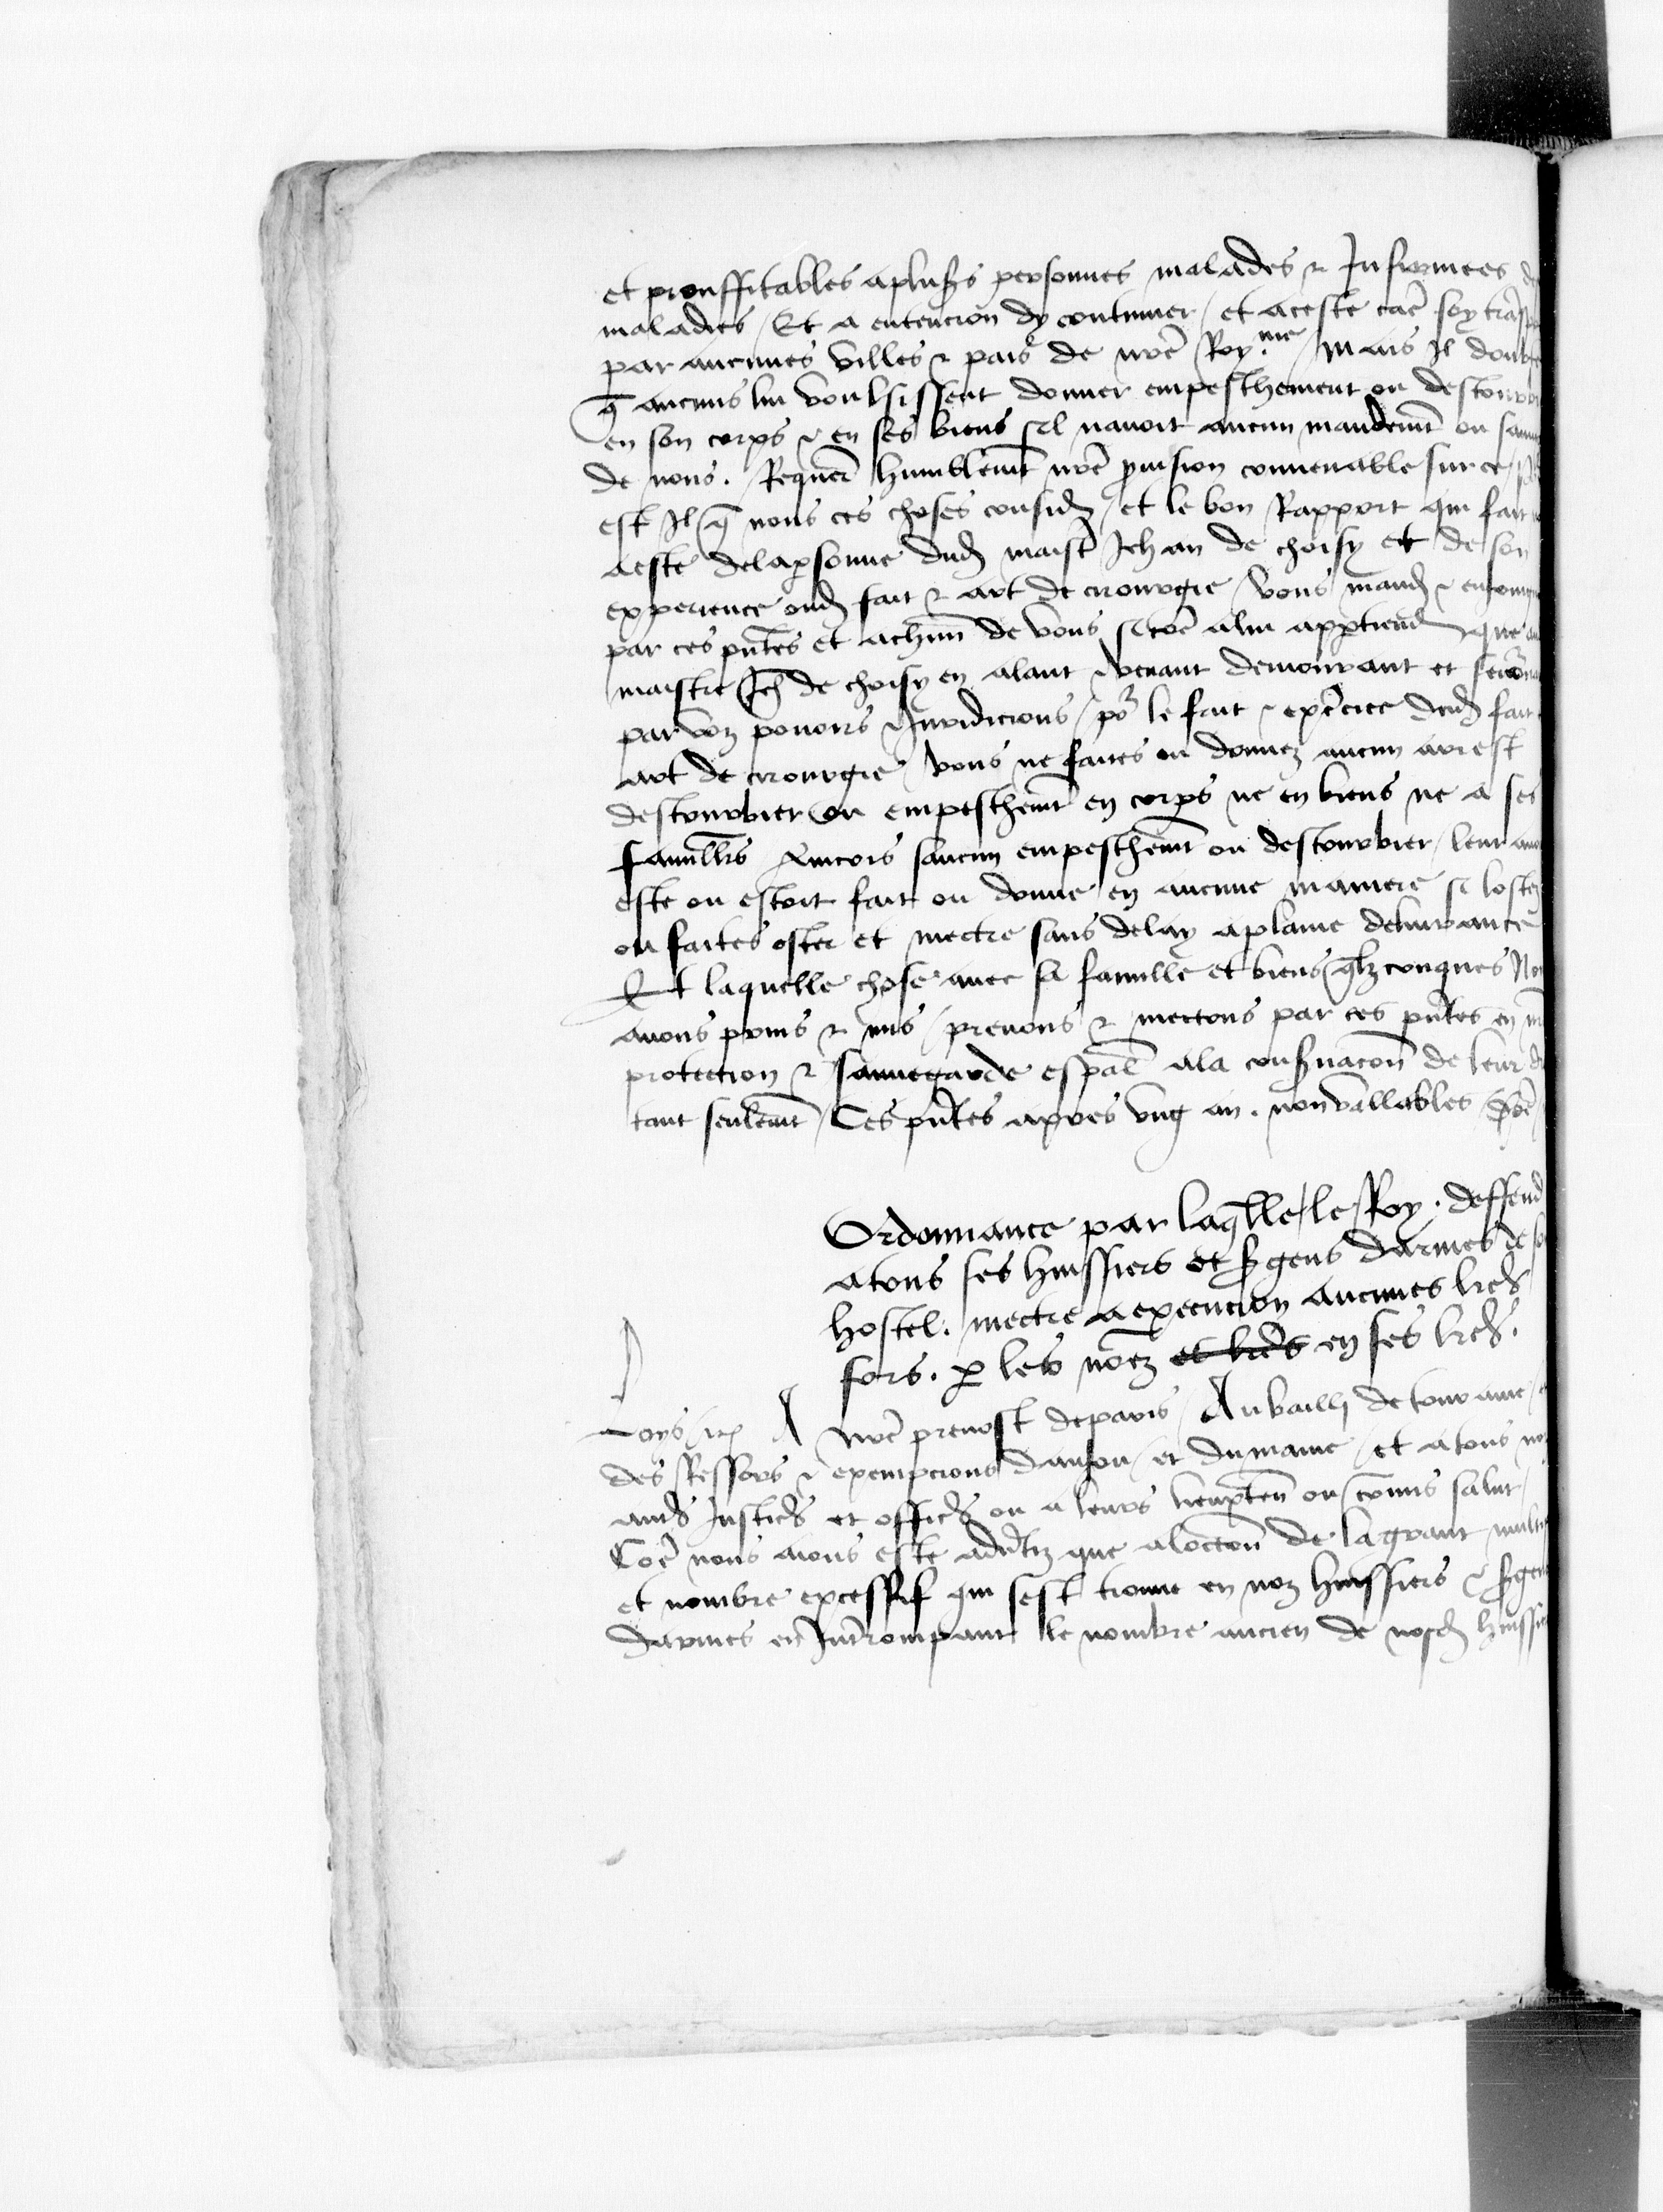 et prouffitables a plus's personnes malades & Infirmees de
maladies / Et a entencion dy continuer / et a ceste cãe soy trãsp
par aucunes villes & pais de nrẽ Roy.me / Mais Il doubte
q̃ aucuns luy voulsissent donner empeschement ou destourb
en son corps & en ses biens sil nauoit aucun mandemt̃ ou sauue
de nous . Requerãt humblemt̃ nrẽ p̃uision conuenable sur ce /
est Il q̃ nous ces choses considₑ̃ / et le bon Rapport qui fait
a este de la p̃sonne dudₑ̃ maistr̃ Jehan de choisy et de son
experience oudₑ̃ fait & art de cirourgie / vous mandₑ̃ & enioing
par ces pñtes et a chũn de vous si cõe a luy app̃tiendra que
maistre Jeh̃ de choisy en alant & venant demourant et seiõrn
par voz pouoirs & Juridicions / por̃ le fait & exẽcice dudₑ̃ fait
art de cirourgie / vous ne faites ou donnez aucun arrest
destourbier ou empeschemt̃ en corps ne en biens ne a ses
familliers Aincois saucun empeschemt̃ ou destourbier / leur au
este ou estoit fait ou donne en aucune maniere si lostez
ou faites oster et mectre sans delay a plaine deliurance
Et laquelle chose auec sa famille et biens q̃lzconques No
auons prins & mis / prenons & mectons par ces pñtes en
protection & sauuegarde esp̃al a la consuacõn de leur d
tant seulemt̃ / Ces pñtes apres vng an . non vallables /
Ordonnance par laq̃lle / le Roy . deffend
a tous ses huissiers et s̃gens darmes de so
hostel . mectre a execucion aucunes lr̃es
fors . p̃ les nõez et lr̃es en ses lr̃es .
Loys / rc̃ A nrẽ preuost de paris / Au bailly de touraine /
des Ressors & exempcions daniou / et du maine / et a tous no
aut̃s Justic̃s et offic̃s ou a leurs lieuxten̄ ou cõmis salut /
Cõe nous aions este adũtiz que a loccõn de la grant multi
et nombre excessif qui sest trouue en noz huissiers & s̃gen
darmes en Int̃rompant le nombre ancien de nosdₑ̃ huissie